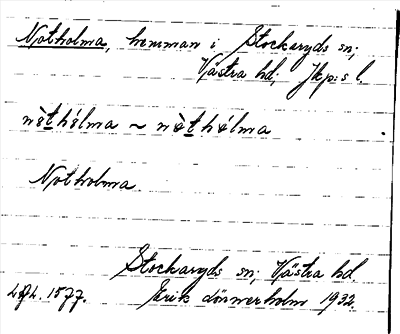 Notholma, hemman i Stockaryds sn;
Västra hd; Jkp:s l.
nò̀thólma ~ nò̀thólma
Notholma
Stockaryds sn; Västra hd.
1577. Erik Lönnerholm 1932.